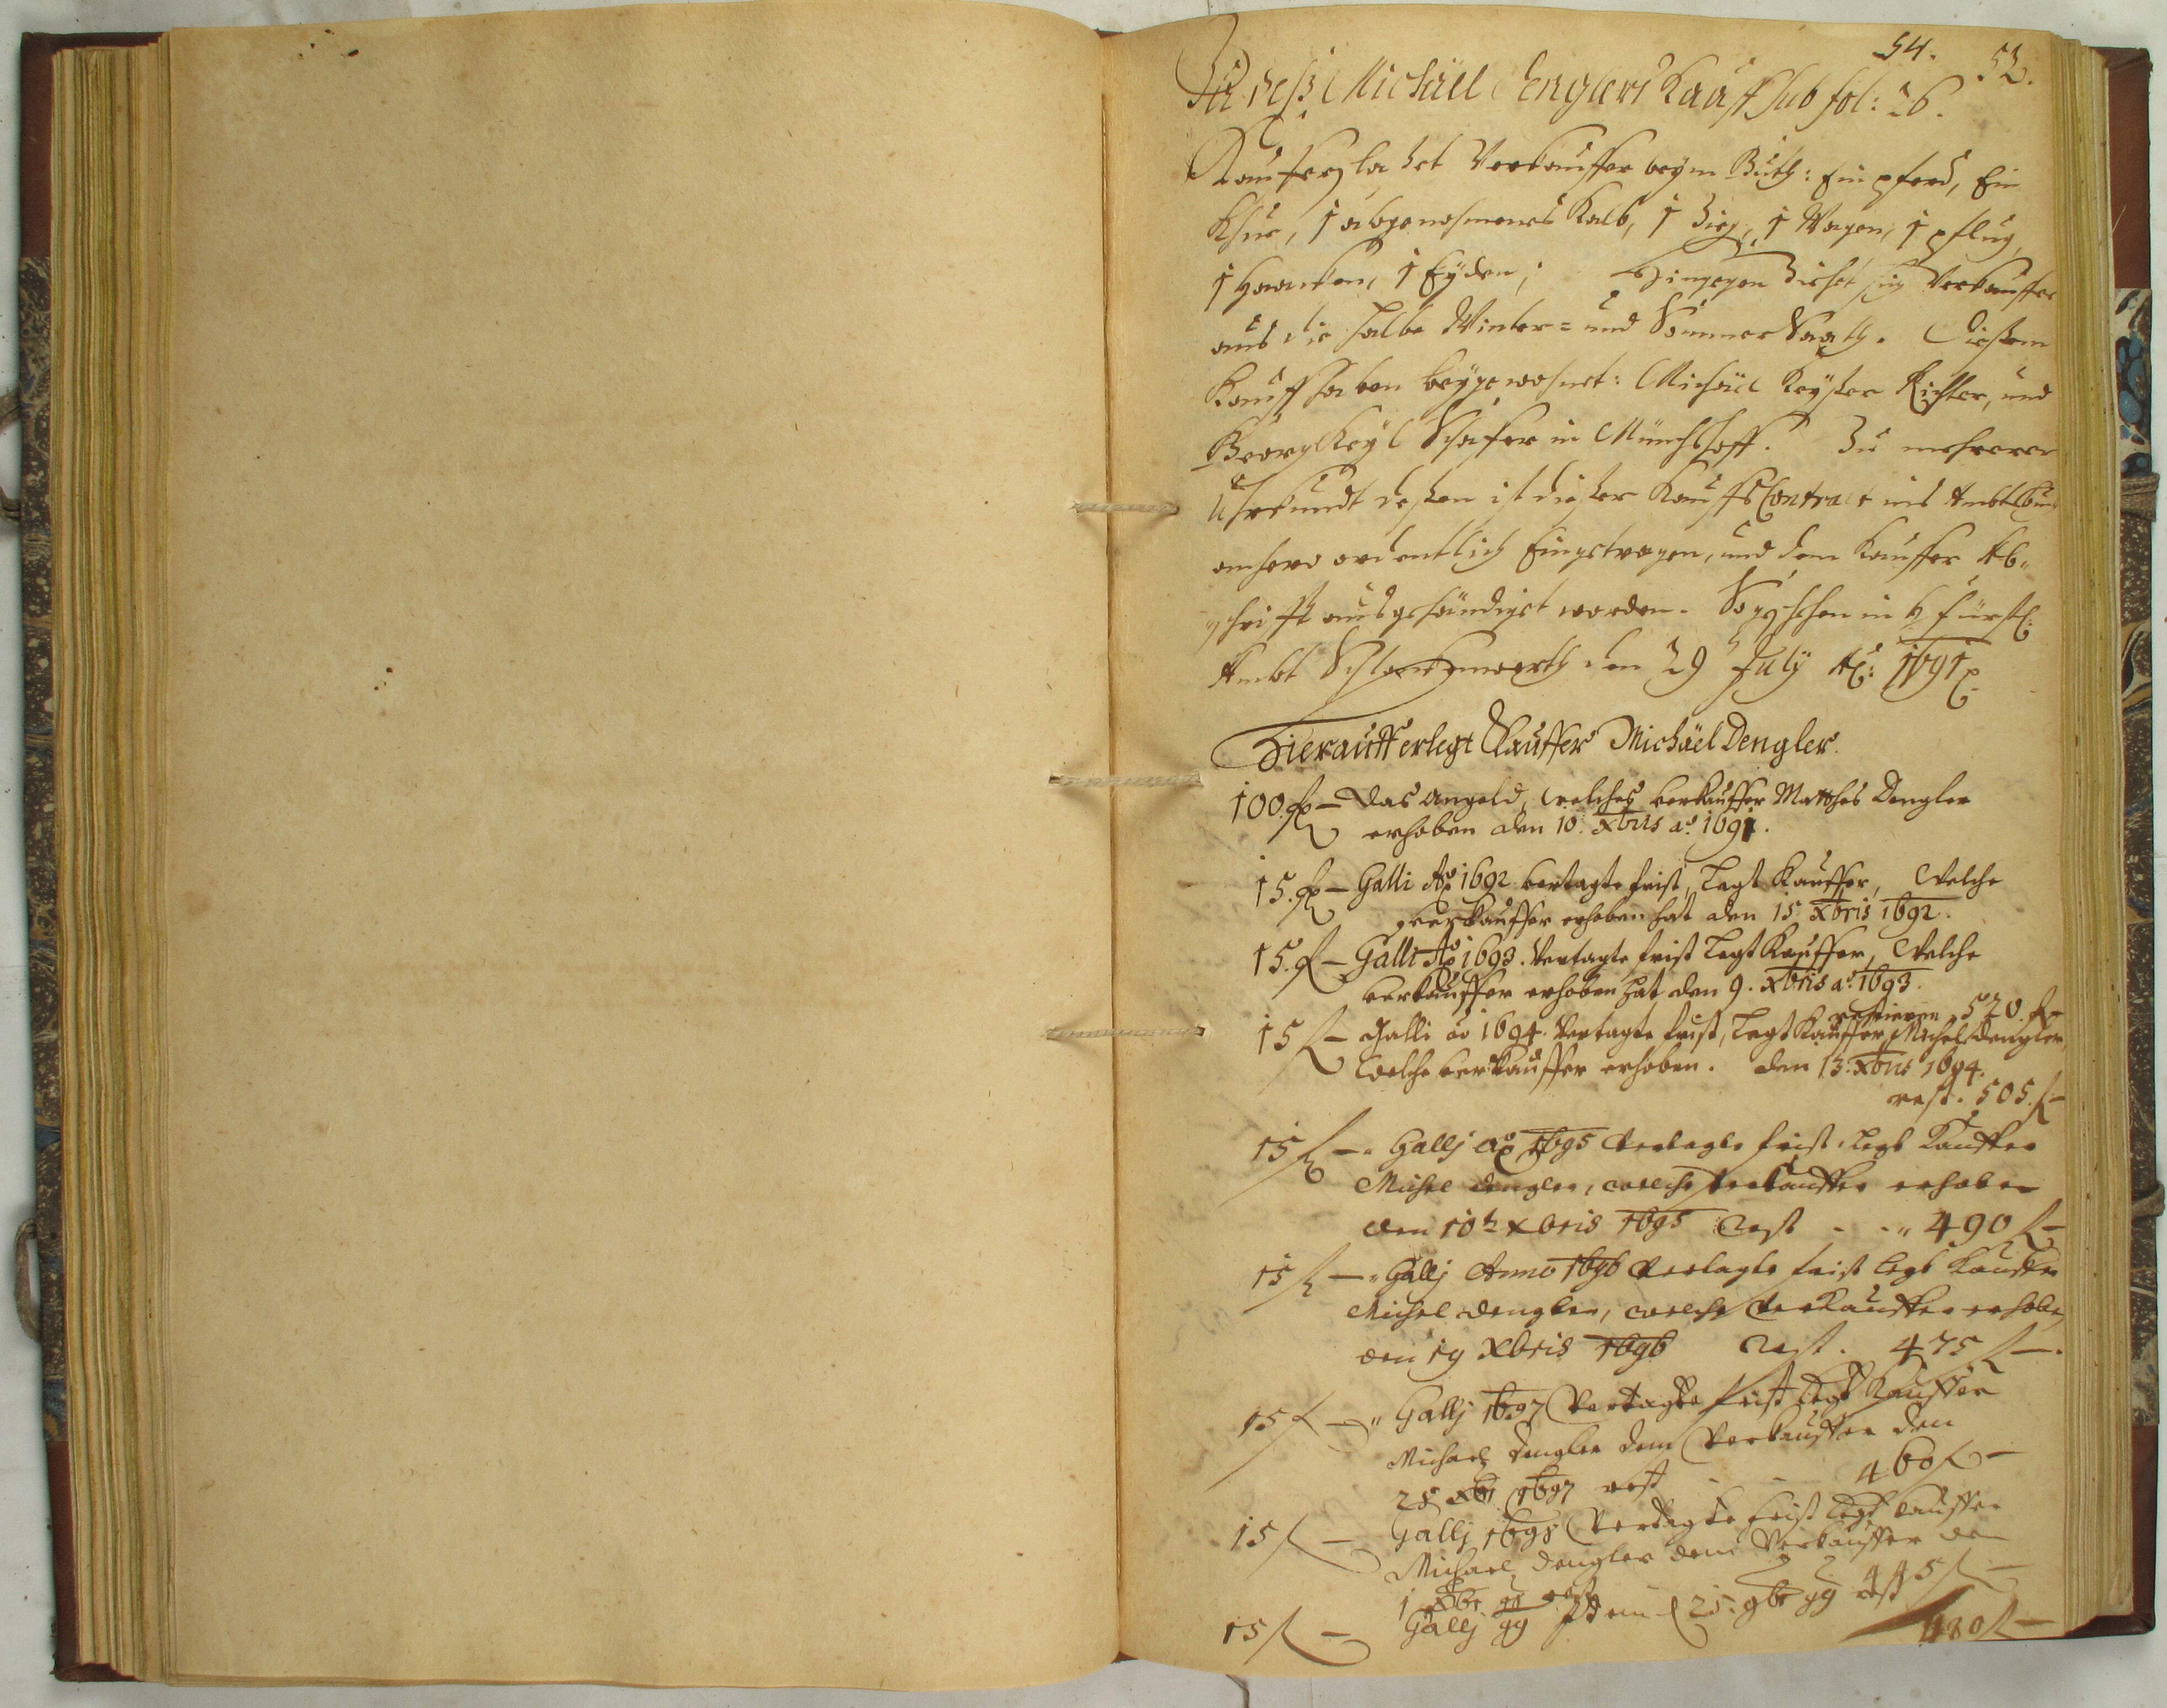 54. 52.
Zu deß Michäel Denglers Kauff sub fol: 26.
Kauffer, laßet Verkauffer beym Guth: Ein pferd, Ein
Khue, 1 abgenohmenes Kalb, 1 Zieg, 1 Wagen, 1 pflug,
1 Haacken, 1 Eyden; Hingegen ziehet sich Verkauffer
aus die halbe Winter= und Sommer Saath. Dießem
Kauff haben beygewohnet: Michäel Keyßer Richter, und
Georg Keyl Schäfer in Münchhoff. Zu mehrerer
Uhrkundt deßen ist dießer Kauffs Contract ins Ambtsbuch
anhero ordentlich Eingetragen, und dem Kauffer Ab-
schrifft ausgehändiget worden. So geschehen in hfürstl:
Ambt Schlackenwerth den 29 July Ao: 1691
Hierauff erlegt Kauffer Michäel Dengler.
100. f — Das Angeld, welches verkauffer Matthes Dengler
erhoben den 10. Xbris ao. 1691.
15. f — Galli Ao 1692 vertagte frist, legt Kauffer, Welche
Verkauffer erhoben hat den 15 Xbris 1692.
15. f — Galli Ao 1693. Vertagte frist legt Kauffer, Welche
verkauffer erhoben hat den 9. Xbris ao. 1693.
restieren 520. f
15 f — Galli ao 1694. Vertagte frist, legt Kauffer, Michel Dengler,
Welche verkauffer erhoben. den 13. Xbris 1694.
rest. 505. f
15 f — Gallj ao 1695 Vertagte frist, legt Kauffer
Michel Dengler, welche Verkauffer erhoben
den 10t Xbris 1695 Rest - - " 490 f
15 f — " Gallj Anno 1696 Vertagte frist legt Kauffer
Michel Dengler, welche Verkauffer erhoben
den 19 Xbris 1696 Rest. 475 f —.
15 f — " Gallj 1697 Vertagte frist legt Kauffer
Michael Dengler dem Verkauffer den
28 Xbr 1697 rest - - 460 f —
15 f — Gallj 1698 Vertagte frist legt Kauffer
Michael Dengler dem Verkauffer den
1 Xbr 98 rest 445 f —
15 f — Gallj 99 Item d 25. 9br 99 rest
430 f —